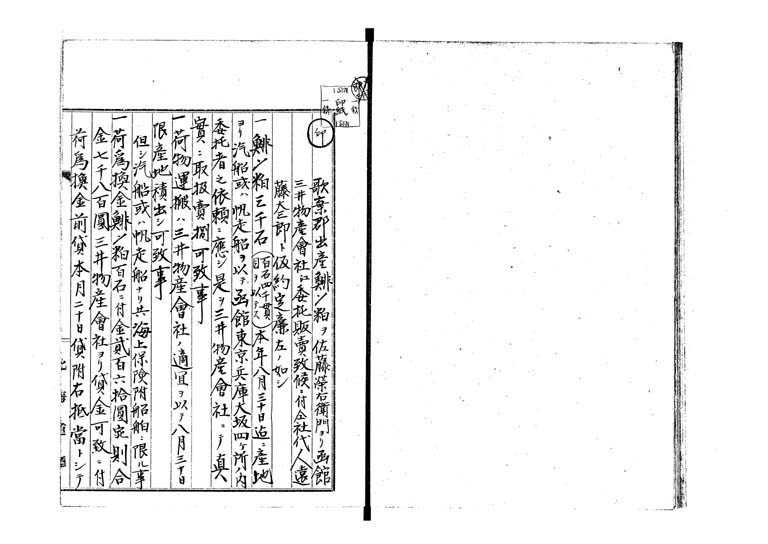 歌棄郡出産鯡〆粕ヲ佐藤榮右衛門ヨリ函館
三井物産會社江委托販賣致候ニ付仝社代人遠
藤大三郎ト仮約定廉左ノ如シ
一鯡〆粕三千石(百石四千貫目ヲ以テス)本年八月三十日迄ニ産地
ヨリ汽船或ハ帆走船ヲ以テ函館東京兵庫大坂四ヶ所ノ内
委托者之依頼ニ應シ是ヲ三井物産會社ニテ真
實ニ取扱賣捌可致事
一荷物運搬ハ三井物産會社ノ適宜ヲ以テ八月三十日
限産地積出シ可致事
但シ汽船或ハ帆走船ナリ共海上保険附船舶ニ限ル事
一荷為換金鯡〆粕百石ニ付金貳百六拾圓宛則合
金七千八百圓三井物産會社ヨリ貸金可致ニ付
荷為換金前貸本月二十日貸附右抵當トシテ
印紙
印